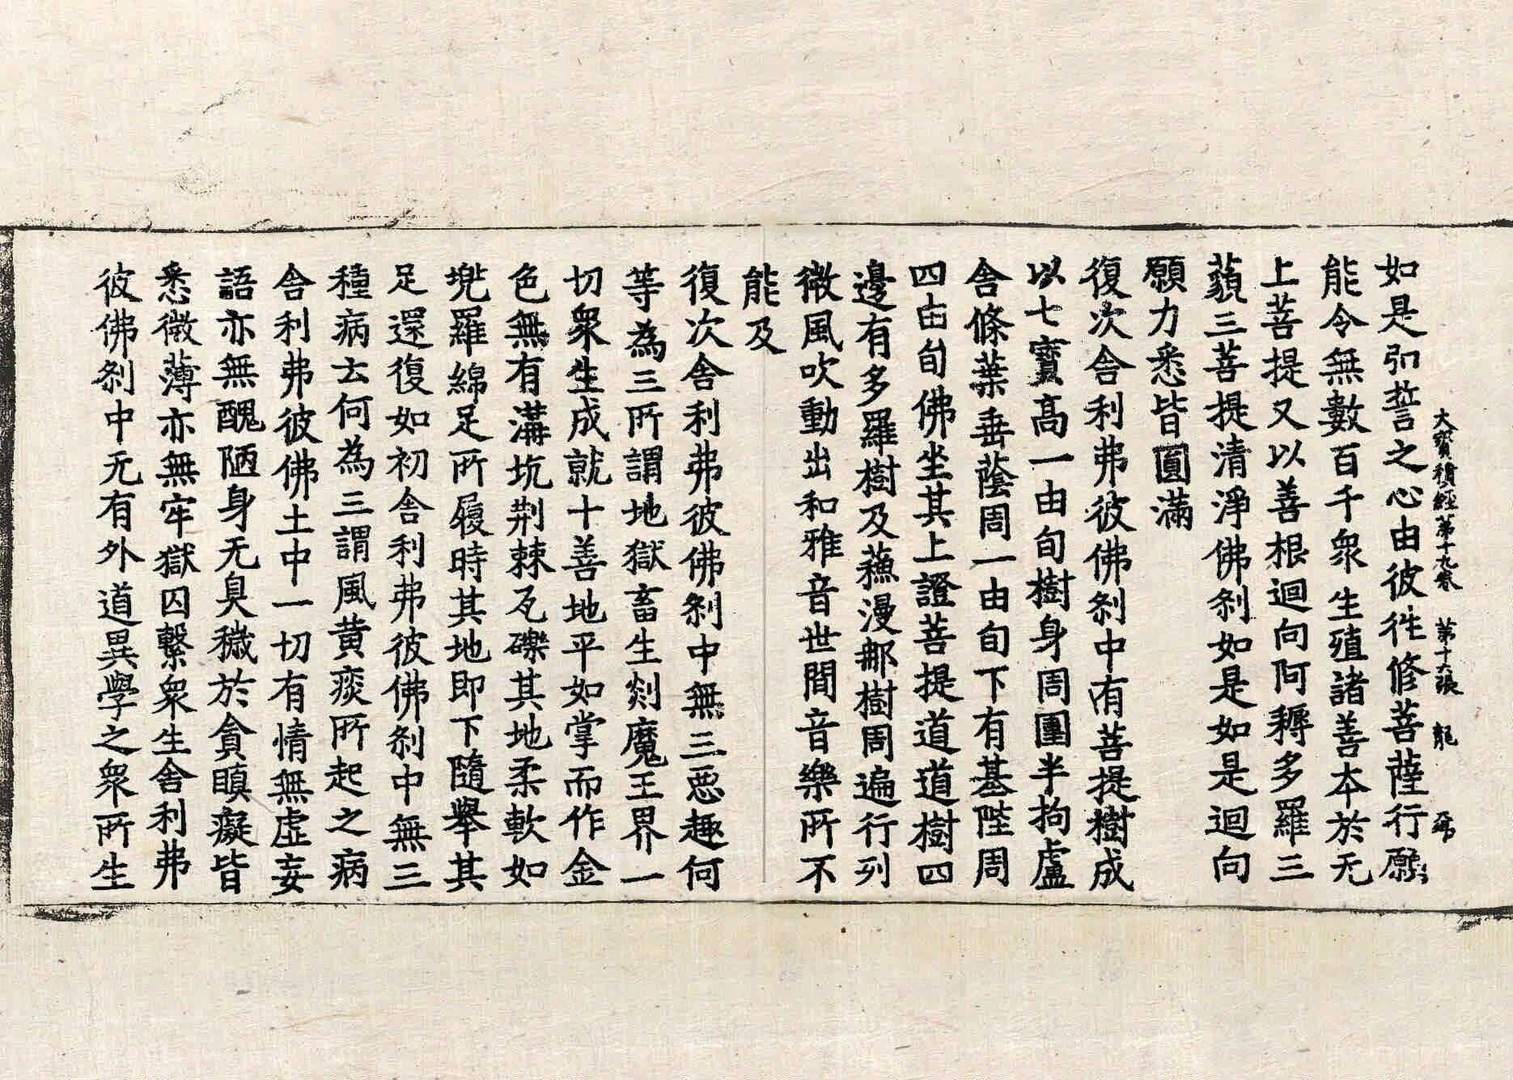 大寶積經第十九卷 第十六張 龍
如是弘誓之心由彼往修菩薩行願
能令無數百千衆生殖諸善夲於无
上菩提又以善根迴向阿耨多羅三
藐三菩提清淨佛刹如是如是迴向
願力悉皆圓滿
復次舍利弗彼佛刹中有菩提樹成
以七寶高一由旬樹身周圍半拘盧
舍條葉垂蔭周一由旬下有基陛周
四由旬佛坐其上證菩提道道樹四
邊有多羅樹及蘓漫那樹周遍行列
微風吹動出和雅音世間音樂所不
能及
復次舍利弗彼佛刹中無三惡趣何
等為三所謂地獄畜生剡魔王界一
切衆生成就十善地平如掌而作金
色無有溝坑荆棘瓦礫其地柔軟如
兠羅綿足所履時其地即下隨舉其
足還復如初舍利弗彼佛刹中無三
種病云何為三謂風黄痰所起之病
舍利弗彼佛土中一切有情無虛妄
語亦無醜陋身无臭穢於貪瞋癡皆
悉微薄亦無牢獄囚繫衆生舍利弗
彼佛刹中无有外道異學之衆所生